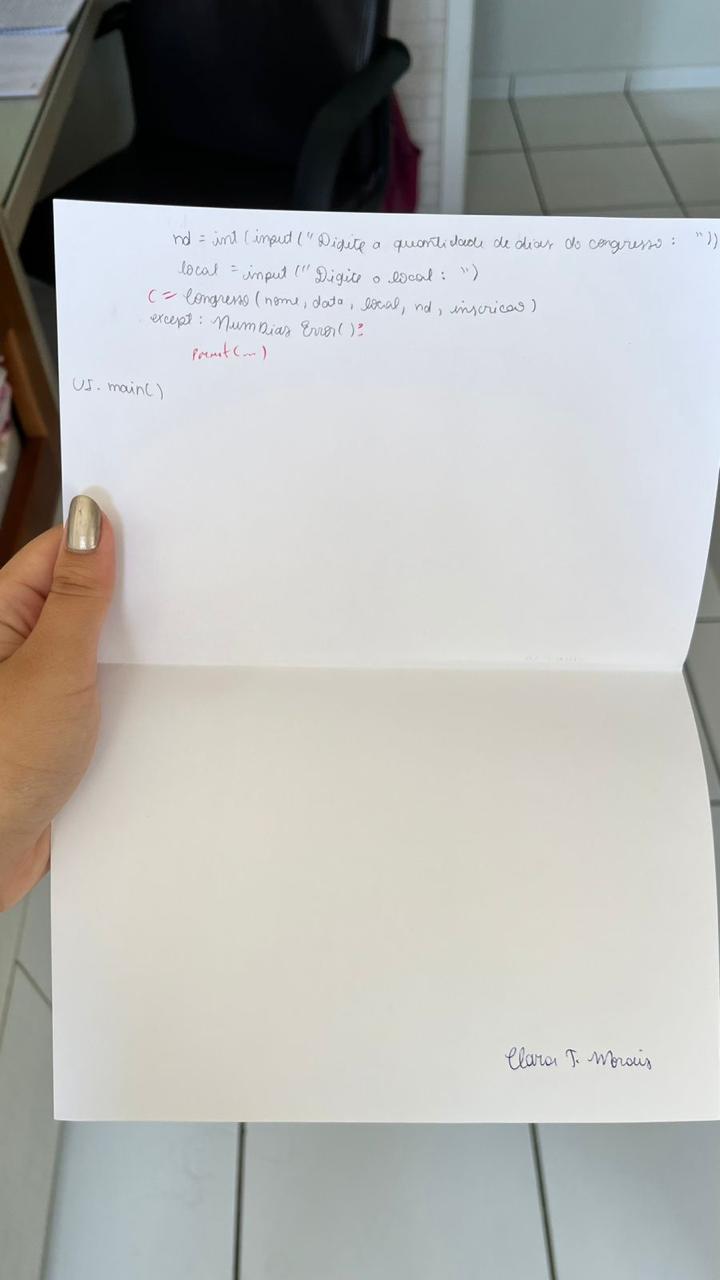 nd = int (input (" Digite a quantidade de dias do congresso : "))
local = input (" Digite o local : ")
C = Congresso (nome, data, local, nd, inscricao)
except : NumDias Error( ):
print(...)
UI. main( )
Clara T. Morais